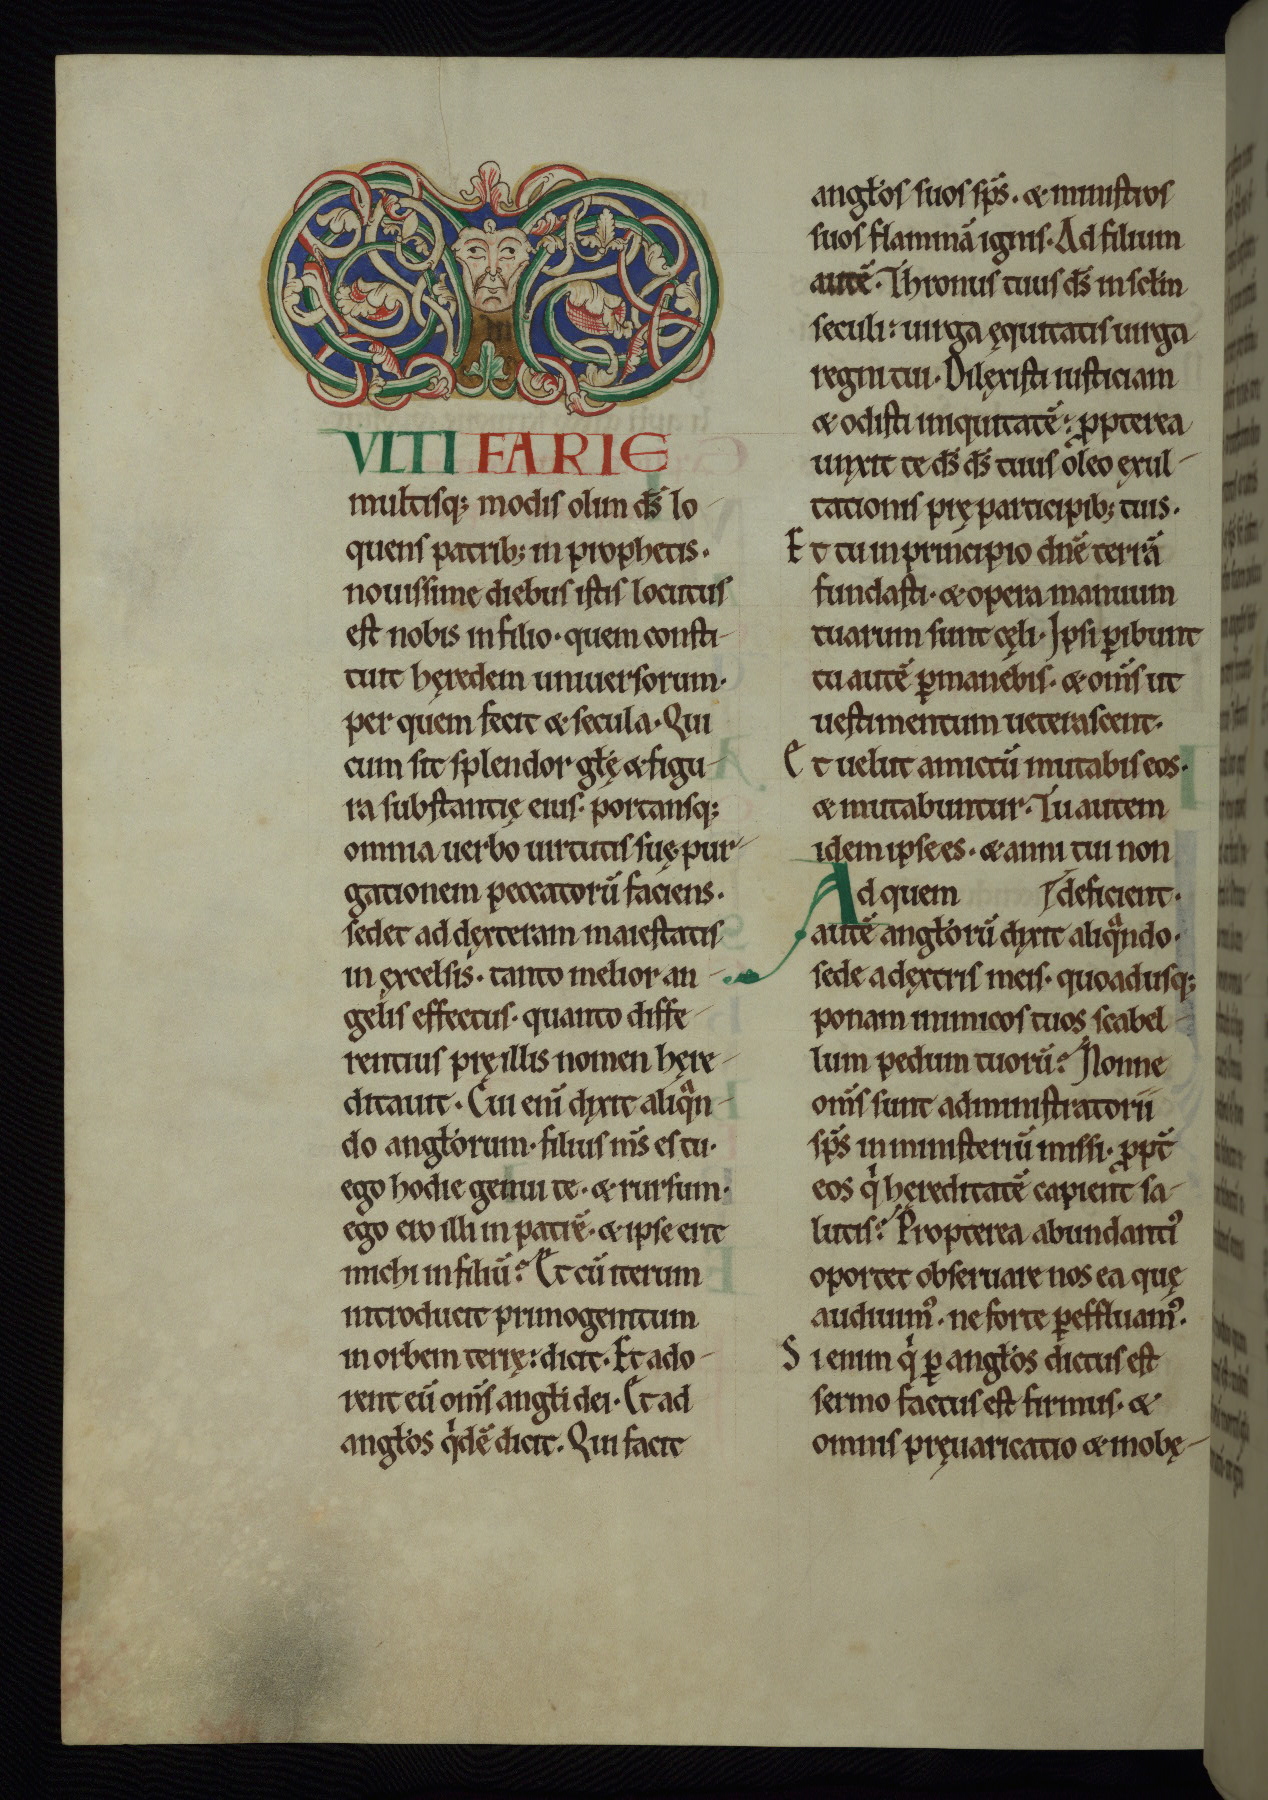 VLTIFARIE
multisq; modis olim d̄s lo-
quens patrib; in prophetis.
nouissime diebus istis locutus
est nobis in filio. quem consti-
tuit hęredem uniuersorum.
per quem fecit & secula. Qui
cum sit splendor glę̄ & figu-
ra substantię eius. portansq;
omnia uerbo uirtutis suę. pur-
gationem peccatorū faciens.
sedet ad dęxteram maiestatis
in excelsis. tanto melior an-
gelis effectus. quanto diffe-
rentius prę illis nomen hęre-
ditauit. Cui enī dixit aliqᷓn-
do angłorum. filius m̄s es tu.
ego hodie genui te. & rursum.
ego ero illi in patrē. & ipse erit
michi in filiū? Et cū iterum
introducit primogenitum
in orbem terrę: dicit. Et ado-
rent eū om̄s angłi dei. Et ad
angłos qͥdē dicit. Qui facit
angłos suos sp̄s. & ministros
suos flammā ignis. Ad filium
autē. Thronus tuus d̄s in sc̄lm
seculi: uirga ęquitatis uirga
regni tui. Dilęxisti iusticiam
& odisti iniquitatē: ꝓpterea
unxit te d̄s d̄s tuus oleo exul-
tationis prę participib; tuis.
Et tu in principio dn̄ē terrā
fundasti. & opera manuum
tuarum sunt cęli. Ipsi ꝑibunt
tu autē ꝑmanebis. & om̄s ut
uestimentum ueterascent.
Et uelut amictū mutabis eos.
& mutabuntur. Tu autem
idem ipse es. & anni tui non
deficient.
Ad quem
autē angłorū dixit aliqᷓndo.
sede a dęxtris meis. quoadusq;
ponam inimicos tuos scabel-
lum pedum tuorū? Nonne
om̄s sunt administratorii
sp̄s in ministeriū missi. ꝓpt̄
eos qͥ hęreditatē capient sa-
lutis? Propterea abundantiꝰ
oportet obseruare nos ea quę
audiuimꝰ. ne forte ꝑeffluamꝰ.
Si enim qͥ ꝑ angłos dictus est
sermo factus est firmus. &
omnis pręuaricatio & inobę-